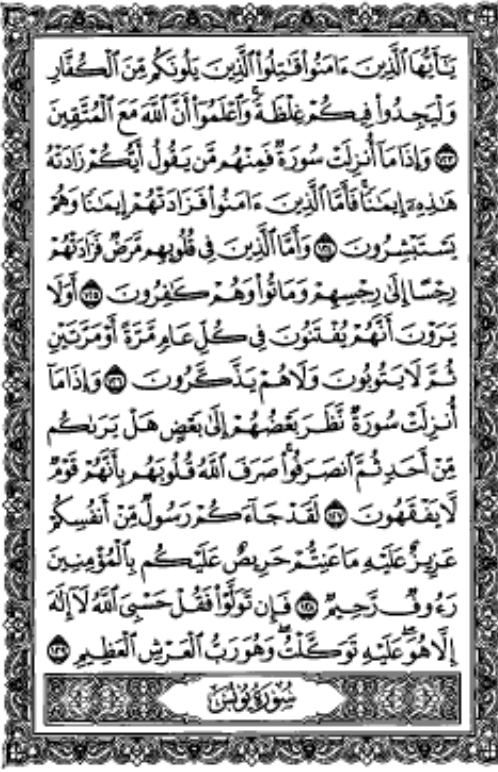 يَـٰٓأَيُّهَا ٱلَّذِينَ ءَامَنُوا۟ قَـٰتِلُوا۟ ٱلَّذِينَ يَلُونَكُم مِّنَ ٱلْكُفَّارِ
وَلْيَجِدُوا۟ فِيكُمْ غِلْظَةً ۚ وَٱعْلَمُوٓا۟ أَنَّ ٱللَّهَ مَعَ ٱلْمُتَّقِينَ
١٢٣ وَإِذَا مَآ أُنزِلَتْ سُورَةٌ فَمِنْهُم مَّن يَقُولُ أَيُّكُمْ زَادَتْهُ
هَـٰذِهِۦٓ إِيمَـٰنًا ۚ فَأَمَّا ٱلَّذِينَ ءَامَنُوا۟ فَزَادَتْهُمْ إِيمَـٰنًا وَهُمْ
يَسْتَبْشِرُونَ ١٢٤ وَأَمَّا ٱلَّذِينَ فِى قُلُوبِهِم مَّرَضٌ فَزَادَتْهُمْ
رِجْسًا إِلَىٰ رِجْسِهِمْ وَمَاتُوا۟ وَهُمْ كَـٰفِرُونَ ١٢٥ أَوَلَا
يَرَوْنَ أَنَّهُمْ يُفْتَنُونَ فِى كُلِّ عَامٍ مَّرَّةً أَوْ مَرَّتَيْنِ
ثُمَّ لَا يَتُوبُونَ وَلَا هُمْ يَذَّكَّرُونَ ١٢٦ وَإِذَا مَآ
أُنزِلَتْ سُورَةٌ نَّظَرَ بَعْضُهُمْ إِلَىٰ بَعْضٍ هَلْ يَرَىٰكُم
مِّنْ أَحَدٍ ثُمَّ ٱنصَرَفُوا۟ ۚ صَرَفَ ٱللَّهُ قُلُوبَهُم بِأَنَّهُمْ قَوْمٌ
لَّا يَفْقَهُونَ ١٢٧ لَقَدْ جَآءَكُمْ رَسُولٌ مِّنْ أَنفُسِكُمْ
عَزِيزٌ عَلَيْهِ مَا عَنِتُّمْ حَرِيصٌ عَلَيْكُم بِٱلْمُؤْمِنِينَ
رَءُوفٌ رَّحِيمٌ ١٢٨ فَإِن تَوَلَّوْا۟ فَقُلْ حَسْبِىَ ٱللَّهُ لَآ إِلَـٰهَ
إِلَّا هُوَ ۖ عَلَيْهِ تَوَكَّلْتُ ۖ وَهُوَ رَبُّ ٱلْعَرْشِ ٱلْعَظِيمِ ١٢٩
سُورَةُ يُونُسَ